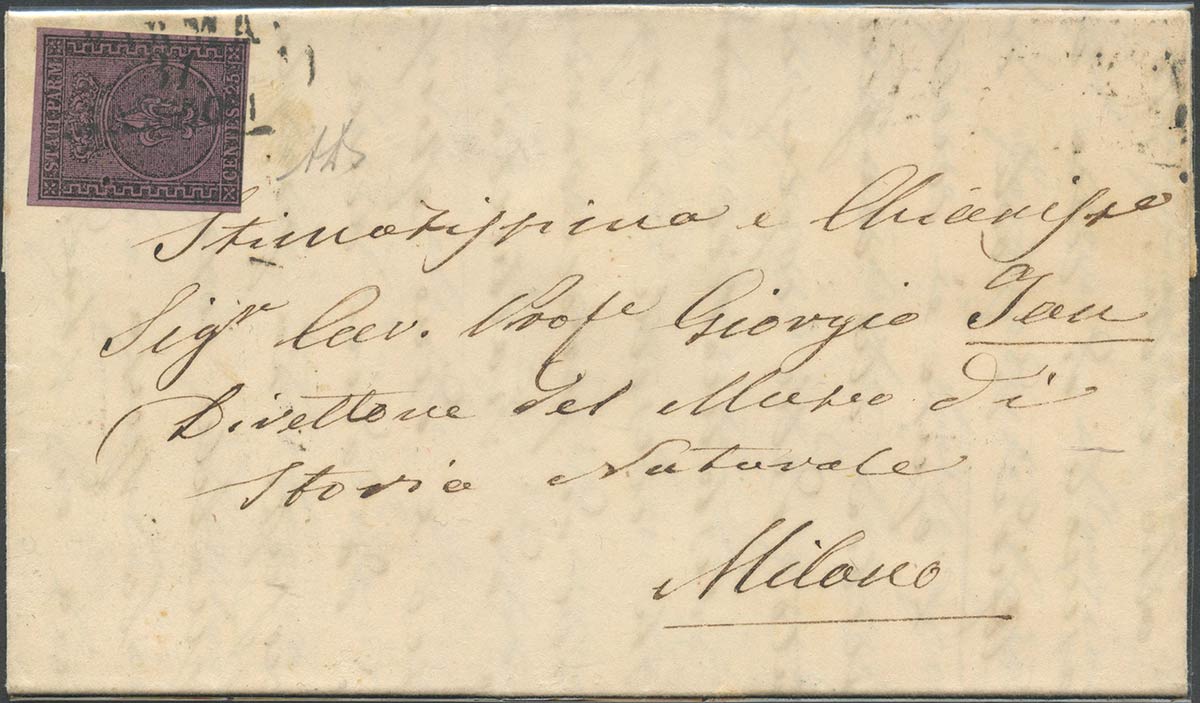 PARMA
31
STATI PARM.
CENTES. 25
Stimatissimo e Chiariss.
Sigr Cav. Profe Giorgio Jan
Direttore del Museo di
Storia Naturale
Milano